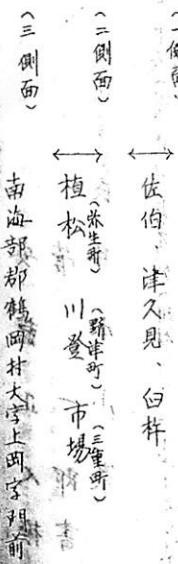 （一側面）
↔ 佐伯、津久見、臼杵
（二側面）
↔ 植松（弥生町） 川登（野津町） 市場（三重町）
（三側面）
南海部郡鶴岡村大字上岡字門前